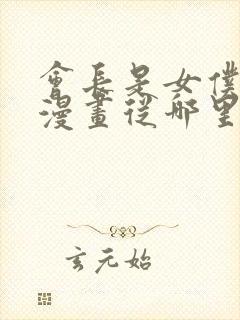 會長是女僕
漫畫從哪里
玄元始